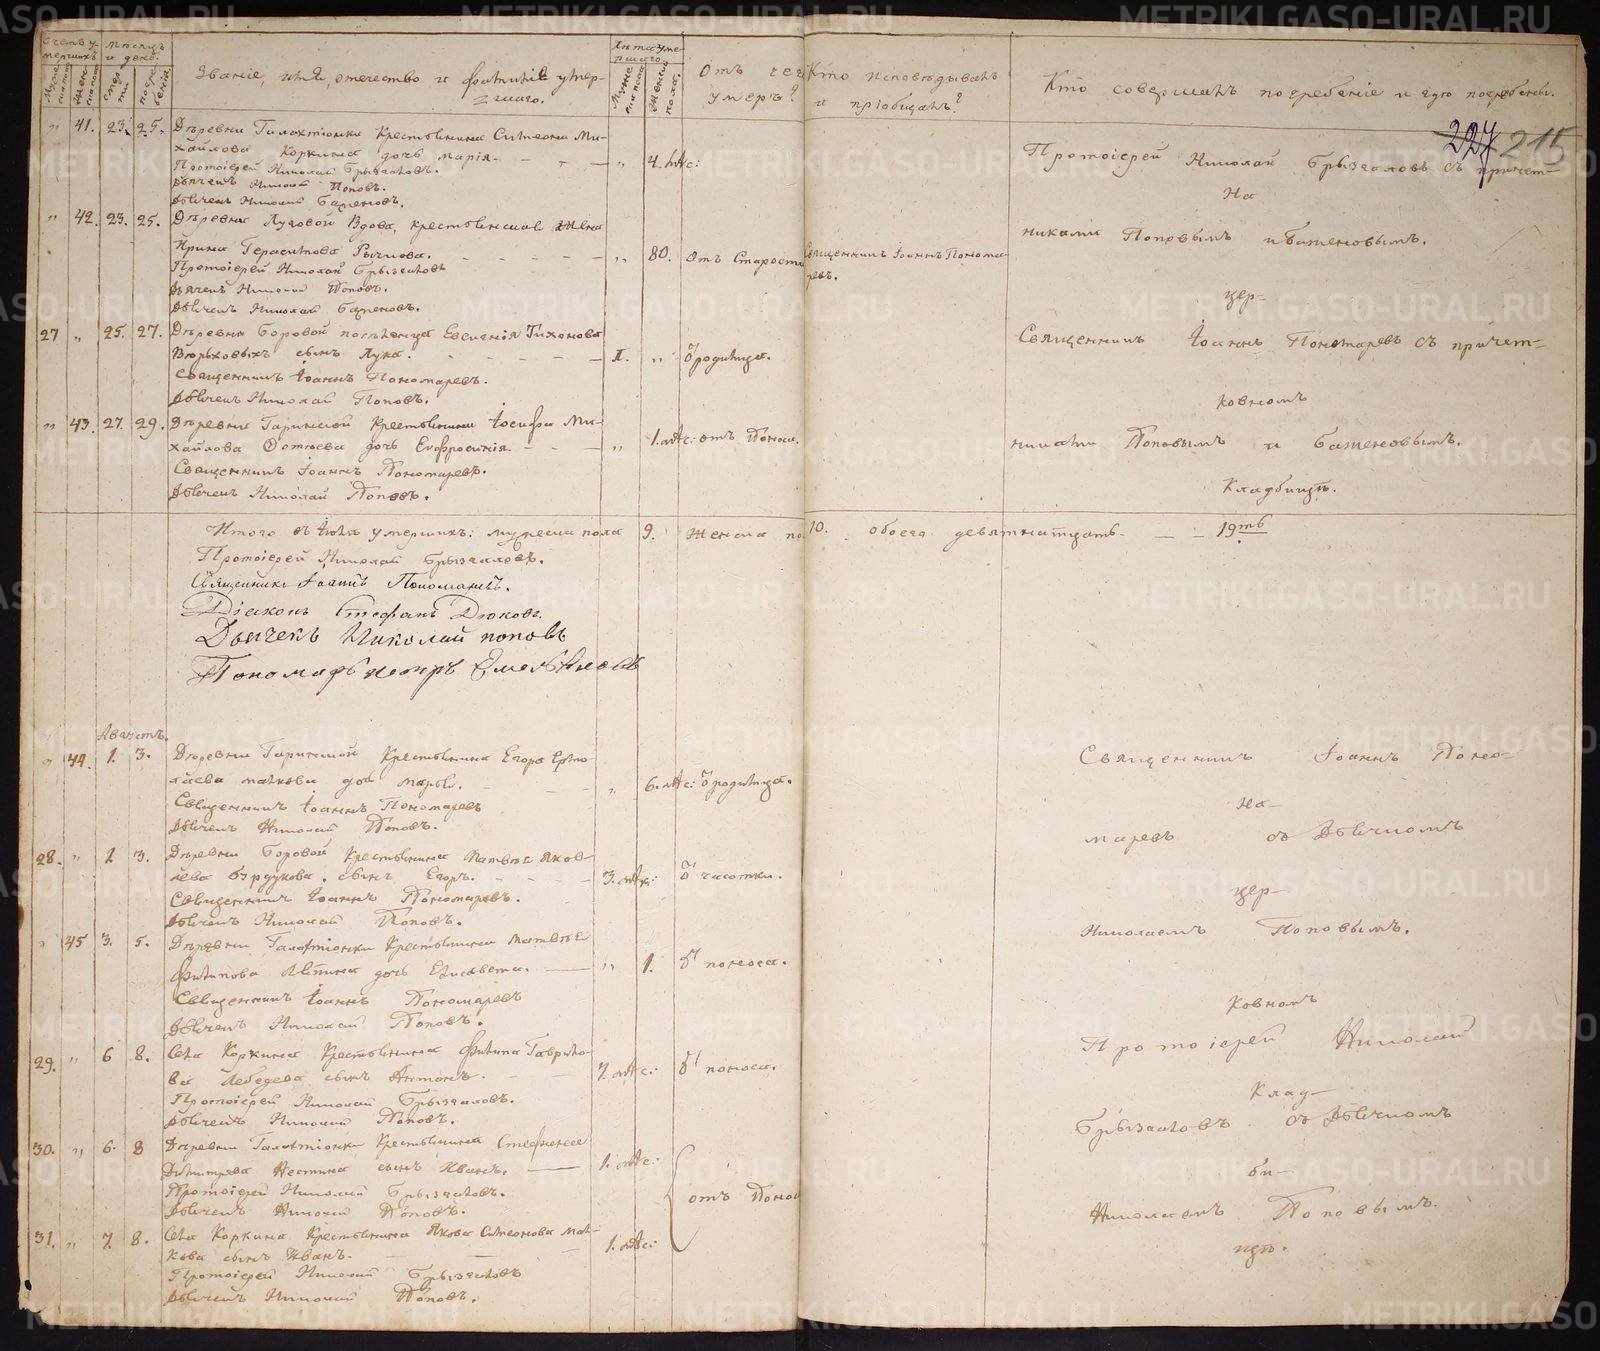 Счетъ умершихъ
Мужеска пола
Женска пола
Мѣсяцъ и день.
смерти
погребенія.
Званіе, имя, отечество и фамилія умер-
шаго.
Лѣта умершаго
Мужеска пола
Женска пола.
Отъ чего
умеръ?
Кто исповѣдывалъ
и пріобщалъ?
Кто совершалъ погребеніе и гдѣ погребены.
227 215
" 41. 23. 25. Деревни Галактіонки Крестьянина Симеона Ми-
хайлова Коркина дочь Марія. " 4. мѣс:
Протоіерей Николай Брызгаловъ.
Дьячекъ Николай Поповъ.
Дьячекъ Николай Баженовъ.
" 42. 23. 25. Деревни Луговой Вдова, крестьянская жена
Ирина Герасимова Рычкова. " 80. Отъ Старости Священникъ Іоаннъ Понома-
ревъ.
Протоіерей Николай Брызгаловъ
Дьячекъ Николай Поповъ.
Дьячекъ Николай Баженовъ.
27 " 25. 27. Деревни Боровой поселенца Евгенія Тихонова
сынъ Лука. " Ѿ родимца.
Священникъ Іоаннъ Пономаревъ.
Дьячекъ Николай Поповъ.
" 43. 27. 29. Деревни Гаринской Крестьянина Іосифа Ми-
хайлова Фотіева дочь Евфросинія. " 1. мѣс: отъ Поноса.
Священникъ Іоаннъ Пономаревъ.
Дьячекъ Николай Поповъ.
Протоіерей Николай Брызгаловъ съ причет-
На
никами Поповымъ и Баженовымъ.
цер-
Священникъ Іоаннъ Пономаревъ съ причет-
ковномъ
никами Поповымъ и Баженовымъ.
Кладбищѣ.
Итого въ Іюлѣ умершихъ: мужеска пола 9. Женска по. 10. обоего девятнатцать. 19ть
Протоіерей Николай Брызгаловъ.
Священникъ Іоаннъ Пономаревъ.
Діаконъ Стефанъ Дюковъ.
Дьячекъ Николай Поповъ
Пономарь Петръ Емельяновъ
Августъ.
" 44. 1. 3. Деревни Гаринской Крестьянина Егора Ермо-
лаева дочь Марья. " 6. мѣс: Ѿ родимца.
Священникъ Іоаннъ Пономаревъ
Дьячекъ Николай Поповъ.
28. " 2 3. Деревни Боровой Крестьянина Матвѣя Яков-
лева Бурдукова, сынъ Егоръ. 3. мѣс: Ѿ чахотки.
Священникъ Іоаннъ Пономаревъ.
Дьячекъ Николай Поповъ.
" 45 3. 5. Деревни Галактіонки Крестьянина Матвѣя
Филипова дочь Елисавета. " 1. Ѿ поноса.
Священникъ Іоаннъ Пономаревъ
Дьячекъ Николай Поповъ.
29. " 6 8. Села Коркина Крестьянина Филипа Гаврило-
ва Лебедева сынъ Антонъ. 7. мѣс: Ѿ поноса.
Протоіерей Николай Брызгаловъ.
Дьячекъ Николай Поповъ.
30. " 6. 8 Деревни Галактіонки Крестьянина
Димитріева сынъ Иванъ. 1. мѣс:
Протоіерей Николай Брызгаловъ.
Дьячекъ Николай Поповъ.
отъ Поноса
31. " 7. 8. Села Коркина Крестьянина Якова Симеонова
сынъ Иванъ. 1. мѣс:
Протоіерей Николай Брызгаловъ
Дьячекъ Николай Поповъ.
Священникъ Іоаннъ Поно-
На-
маревъ съ Дьячкомъ
цер-
Николаемъ Поповымъ.
ковномъ
Протоіерей Николай
Клад-
Брызгаловъ съ Дьячкомъ
би-
Николаемъ Поповымъ.
щѣ.
METRIKI.GASO-URAL.RU